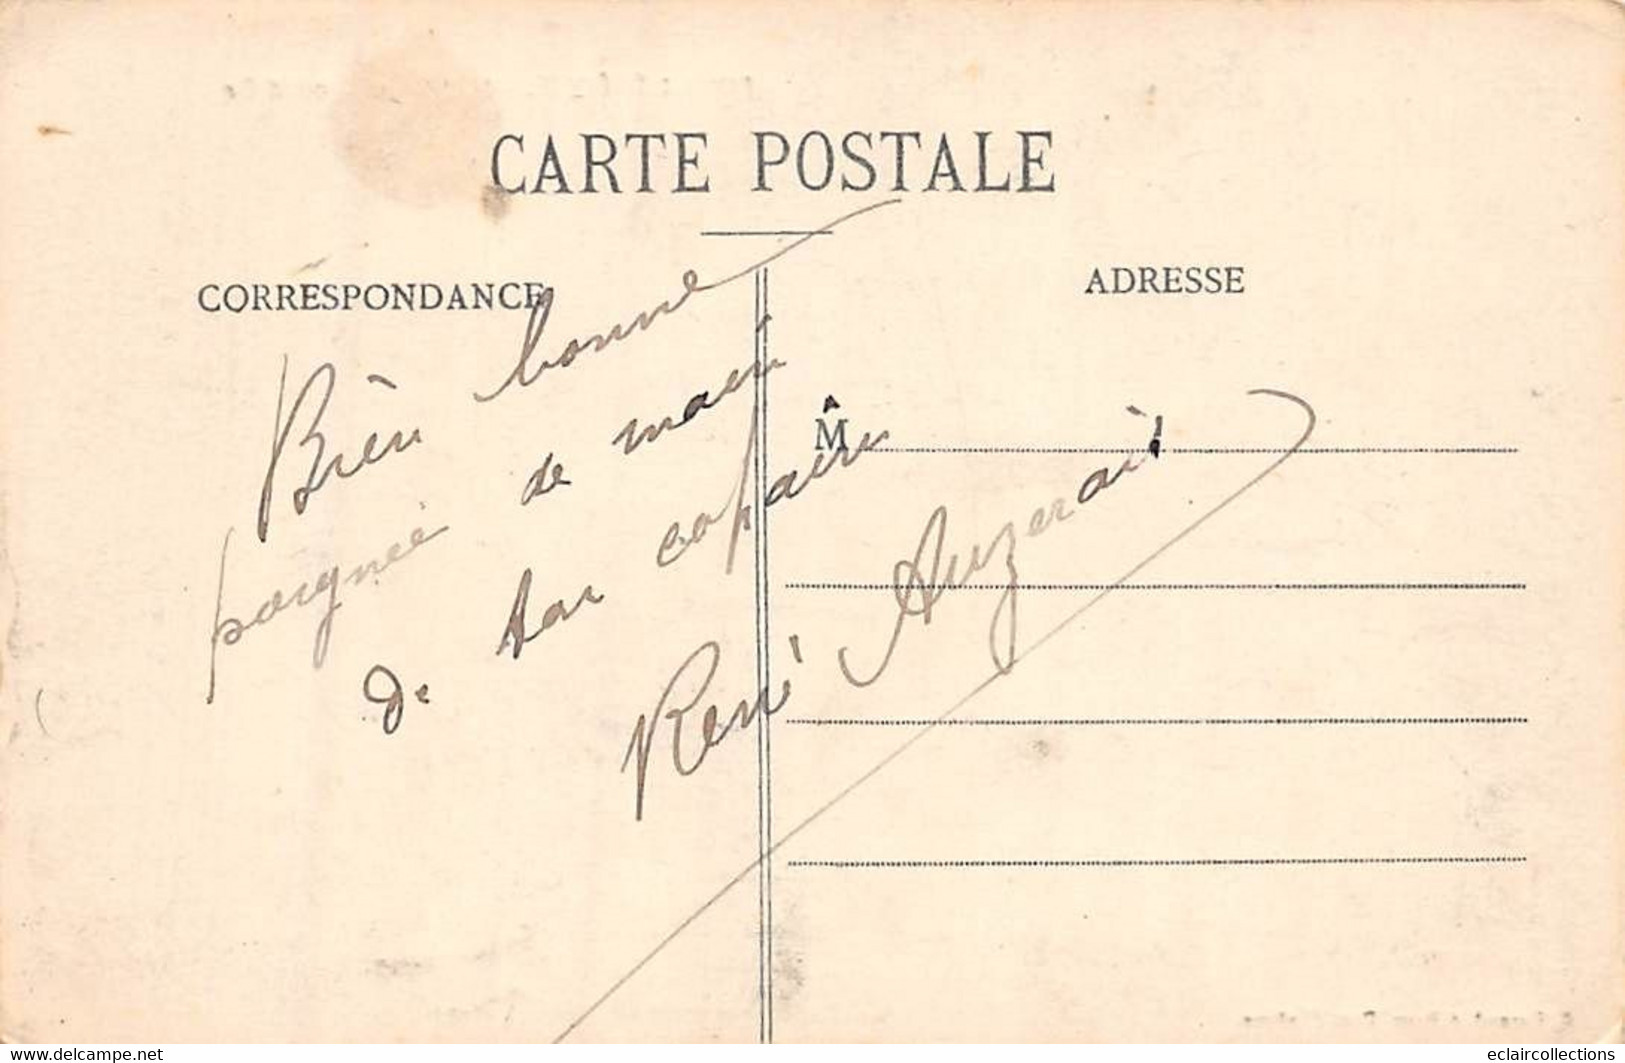 CARTE POSTALE
CORRESPONDANCE
ADRESSE
M
Bien bonne
poignée de main
de ton copain
René Auzerais
delcampe.net
eclaircollections